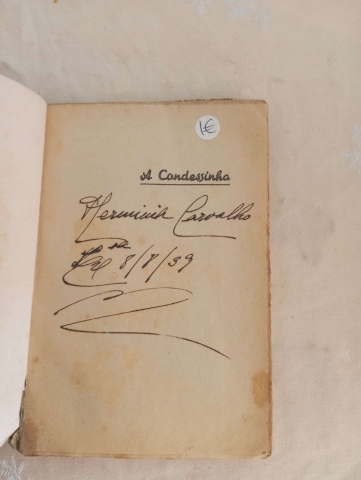 1€
A Condessinha
Herminia Carvalho
8/8/39